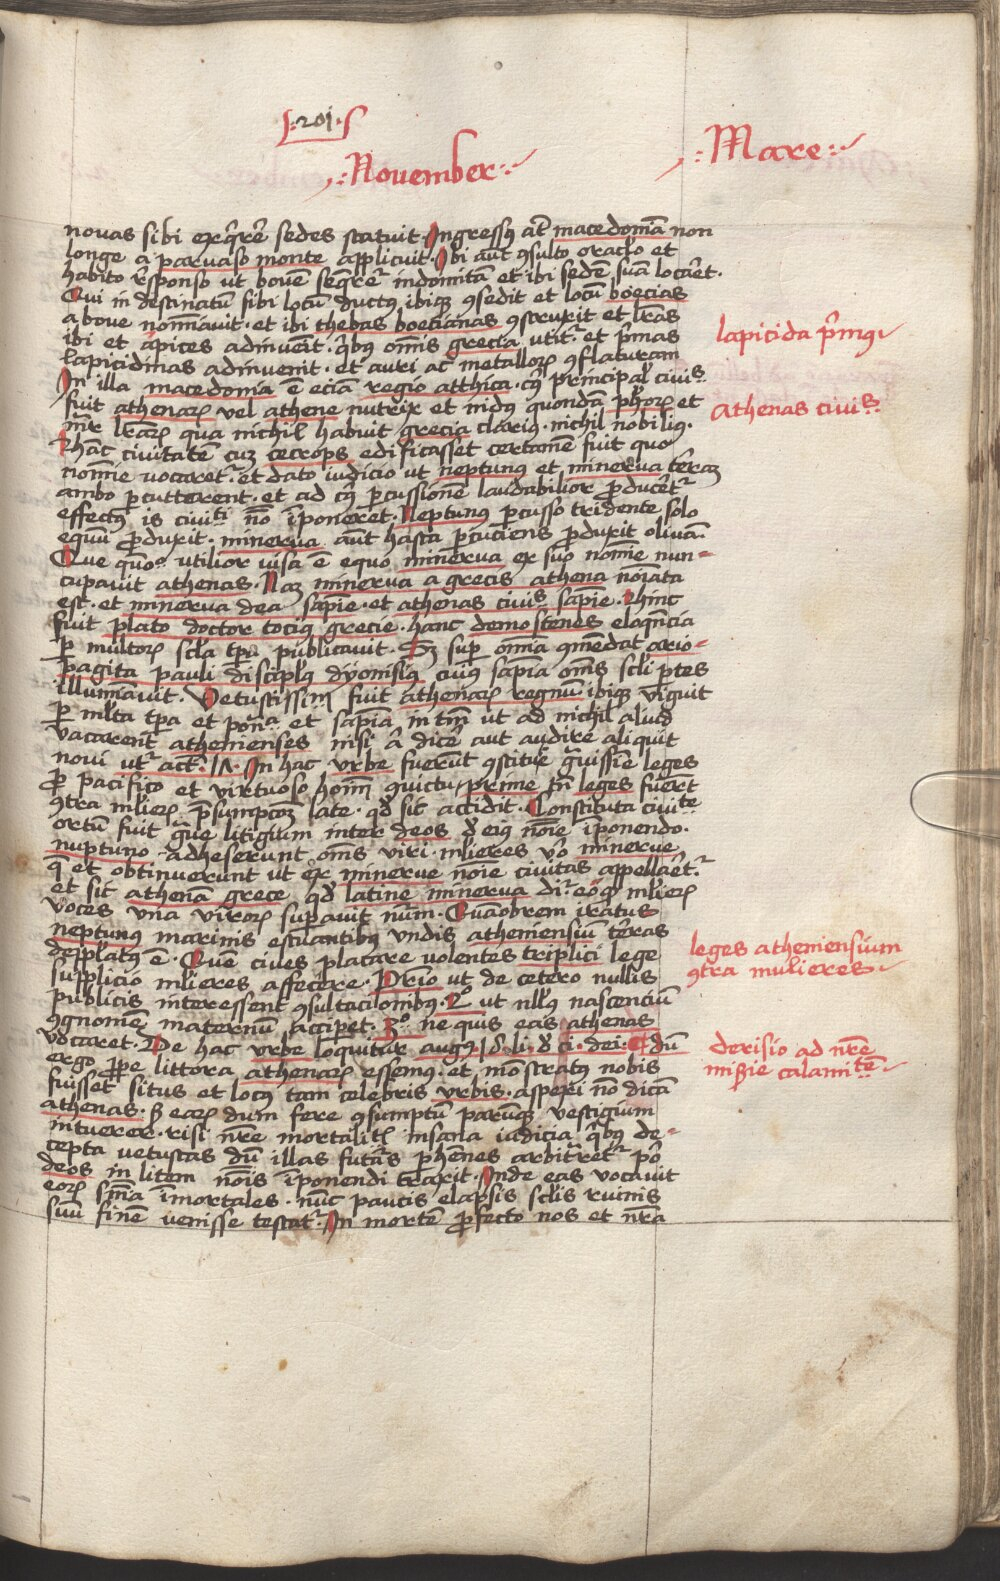 .201.
November
Mare
novas sibi exqrere sedes statuit. Ingressus at macedoniam non
longe a parnaso monte applicuit. Ibi aut 9sulto oraclo et
habito responso ut bovem seqret indomitam et ibi sedem sua locaret.
Qui in destinatum sibi locum ductus ibique 9sedit et locum boecias
a bove nominavit. et ibi thebas boetianas 9struxit et lras
ibi et apices adinvenit. qbus omnis grecia utitr. et primas
lapicidinas adinvenit. et auri ac metallorum 9flaturam
lapicida primus
In illa macedonia e eciam regio atthica. cuius principal civis
fuit athenarum vel athene nutrix et nidus quondam phorum et
athenas civis
mr lrarum qua nichil habuit grecia clarius. nichil nobilius.
hanc civitatem cum cecrops edificasset certamen fuit quo
nomine vocaretr. et dato iudicio ut neptunus et minerva terram
ambo percutterent. et ad cuius percussionem laudabilior producetr
effectus is civiti nomen imponeret. Neptunus percusso tridente solo
equum produxit. minerva aut hasta percutiens produxit olivam.
Que quoque utilior visa e equo minerva ex suo nomine nun=
cupavit athenas. Nam minerva a grecis athena noiata
est. et minerva dea sapie. et athenas civis sapie. hinc
fuit plato doctor tocius grecie. hanc demostenes eloquencia
per multorum scla tpa publicavit. Sed super omnia 9mendat ario=
pagita pauli discipulus dyonisius cuius sapiam omnes scli partes
illuminavit. Vetustissimum fuit athenarum regnum ibique viguit
per multa tpa et potencia et sapia in tm ut ad nichil aliud
vacarent athenienses nisi aut dicere aut audire aliquit
novi utr act. 17. In hac urbe fuerunt 9stitute gravissime leges
pro pacifico et virtuoso hominum 9victu. prime tn leges fuerunt
9tra mlierum presumpcionem late. qd sic accidit. Constituta civite
ortum fuit grande litigium inter deos de eius nomine imponendo.
nuptuno adheserunt omnes viri. mlieres vero minerve
que et obtinuerunt ut ex minerve noie civitas appellaretr.
et sic athena grece qd latine minerva dicitur. eo qd mlierum
voces una virorum superavit numerum. Quamobrem iratus
neptunus marinis estuantibus undis atheniensium terras
leges atheniensium
9tra mulieres
depplatus e. Quem cives placare volentes triplici lege
supplicio mlieres affecere. Primo ut de cetero nullis
publicis interessent 9sultacionibus. 2 ut nullus nascencium
9gnomen maternum acciperet. 3o ne quis eas athenas
vocaret. De hac urbe loquitur augus 18. li. de ci. dei. dum
derisio ad nre
miserie calamitem
ergo prope littora athenarum essemus. et monstratus nobis
fuisset situs et locus tam celebris urbis. asperi no dicam
athenas. sed earum dum fere 9sumptum parumque vestigium
intuerer. risi nre mortalitatis insana iudicia qbus de=
cepta vetustas dum illas futuras perhennes arbitraretr pro
deos in litem nominis imponendi traxit. Inde eas vocavit
eorum sententia immortales. nunc paucis elapsis sclis ruinis
suum finem venisse testatr. In mortem profecto nos et nra